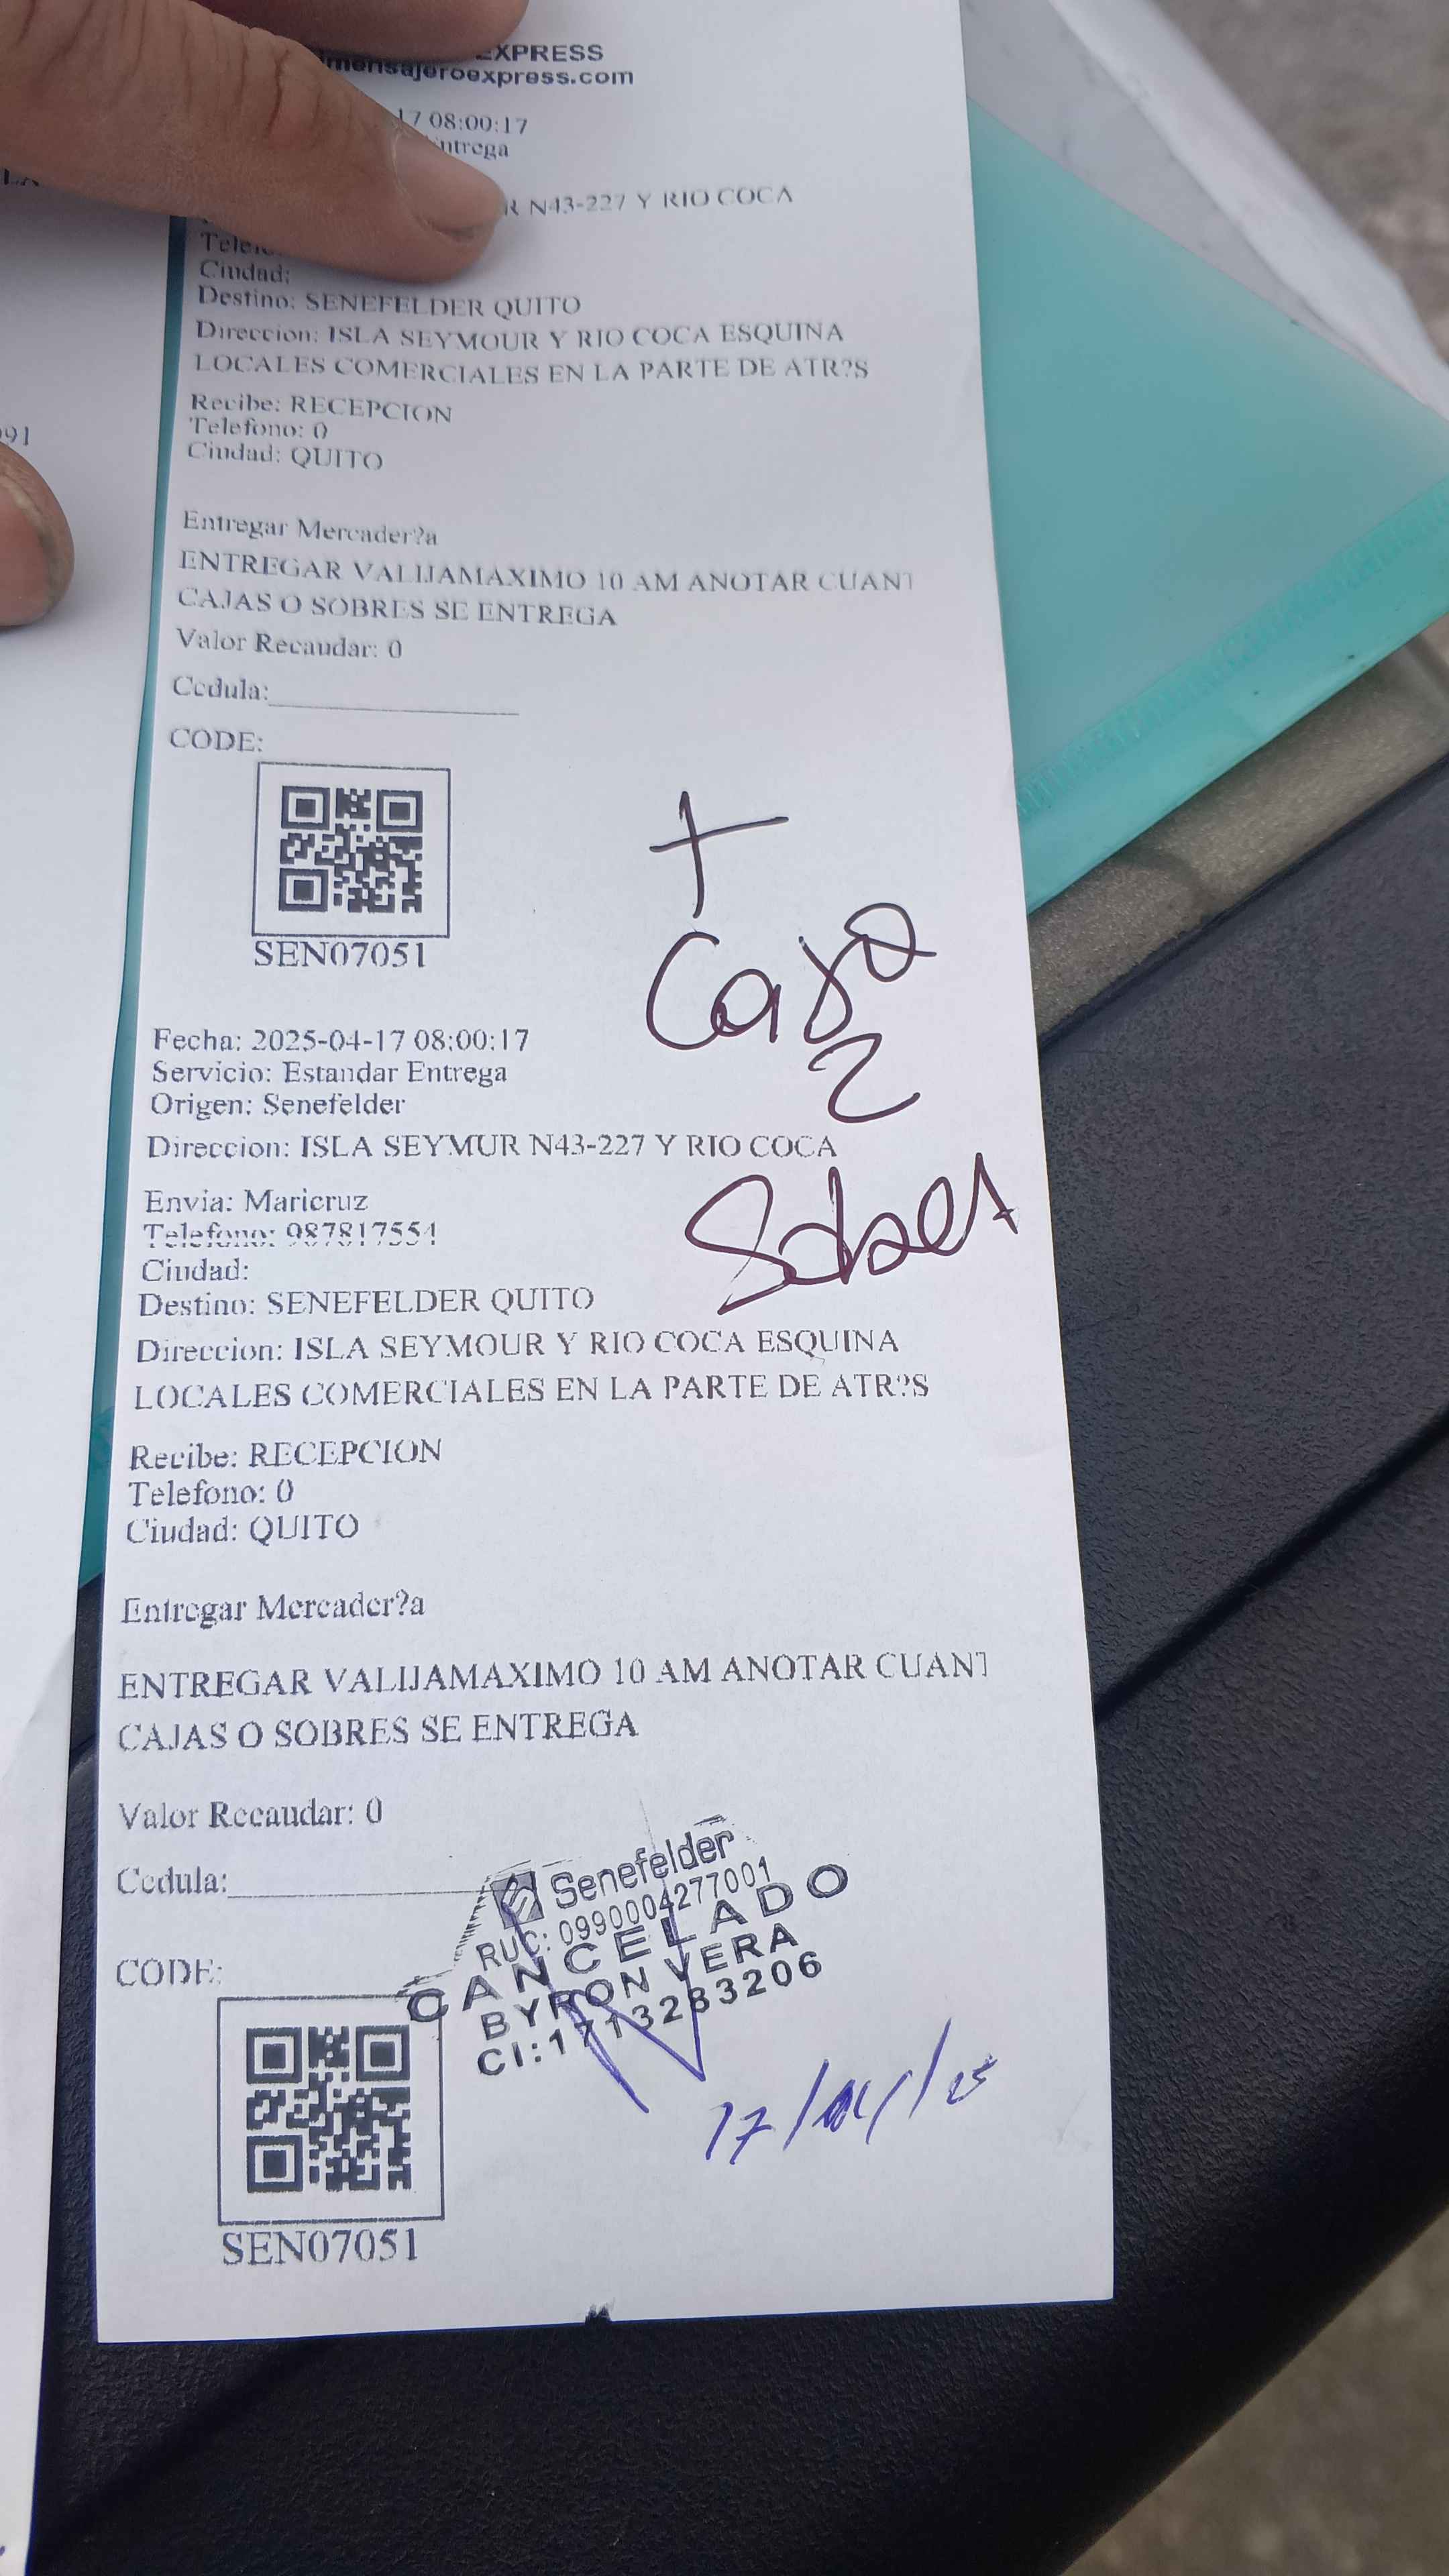 EXPRESS
mensajeroexpress.com
17 08:00:17
ntrega
R N43-227 Y RIO COCA
Ciudad:
Destino: SENEFELDER QUITO
Direccion: ISLA SEYMOUR Y RIO COCA ESQUINA
LOCALES COMERCIALES EN LA PARTE DE ATR?S
Recibe: RECEPCION
Telefono: 0
Ciudad: QUITO
Entregar Mercader?a
ENTREGAR VALIJAMAXIMO 10 AM ANOTAR CUANT
CAJAS O SOBRES SE ENTREGA
Valor Recaudar: 0
Cedula:
CODE:
SEN07051
+
Caja
2
Sobres
Fecha: 2025-04-17 08:00:17
Servicio: Estandar Entrega
Origen: Senefelder
Direccion: ISLA SEYMUR N43-227 Y RIO COCA
Envia: Maricruz
Telefono: 987817554
Ciudad:
Destino: SENEFELDER QUITO
Direccion: ISLA SEYMOUR Y RIO COCA ESQUINA
LOCALES COMERCIALES EN LA PARTE DE ATR?S
Recibe: RECEPCION
Telefono: 0
Ciudad: QUITO
Entregar Mercader?a
ENTREGAR VALIJAMAXIMO 10 AM ANOTAR CUANT
CAJAS O SOBRES SE ENTREGA
Valor Recaudar: 0
Cedula:
Senefelder
RUC: 0990004277001
CANCELADO
BYRON VERA
CI:1713283206
CODE:
17/04/25
SEN07051